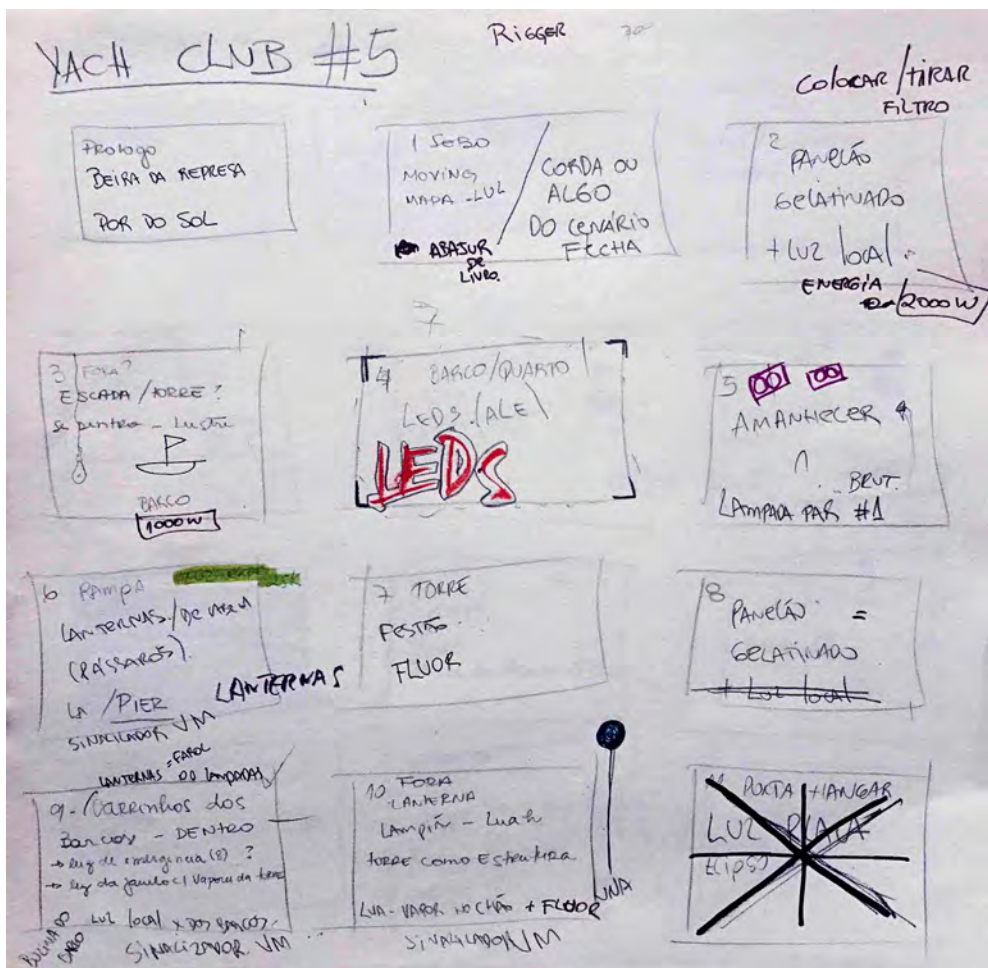 YACH CLUB #5
RIGGER
COLOCAR/TIRAR
FILTRO
PROLOGO
BEIRA DA REPRESA
POR DO SOL
1 SEBO
MOVING
MAPA - LUZ
ABAJUR
DE
LIVRO.
CORDA OU
ALGO
DO CENÁRIO
FECHA
2
PANELÃO
GELATINADO
+ LUZ local
ENERGÍA
2000W
3 FORA?
ESCADA / TORRE?
BARCO
1000W
7
4 BARCO/QUARTO
LEDS (ALE)
LEDS
5
AMANHECER
BRUT.
LAMPADA PAR #1
6 RAMPA
LANTERNAS
(PÁSSAROS)
LA /PIER
LANTERNAS
SINALIZADOR VM
7 TORRE
FESTÃO
FLUOR
8
PANELÃO =
GELATINADO
+ LUZ local
LANTERNAS = FAROL
00 LAMPADAS
9 - Carrinhos dos
Barcos - DENTRO
→ luz de emergencia (8) ?
→ luz da janela c/ Vapor da torre
LUZ local x dos BARCOS.
SINALIZADOR VM
10 FORA
- LANTERNA
Lampião - Luah
TORRE COMO Estrutura
LUA - VAPOR NO CHÃO + FLUOR
SINALIZADOR VM
11 PORTA HANGAR
LUZ PLACA